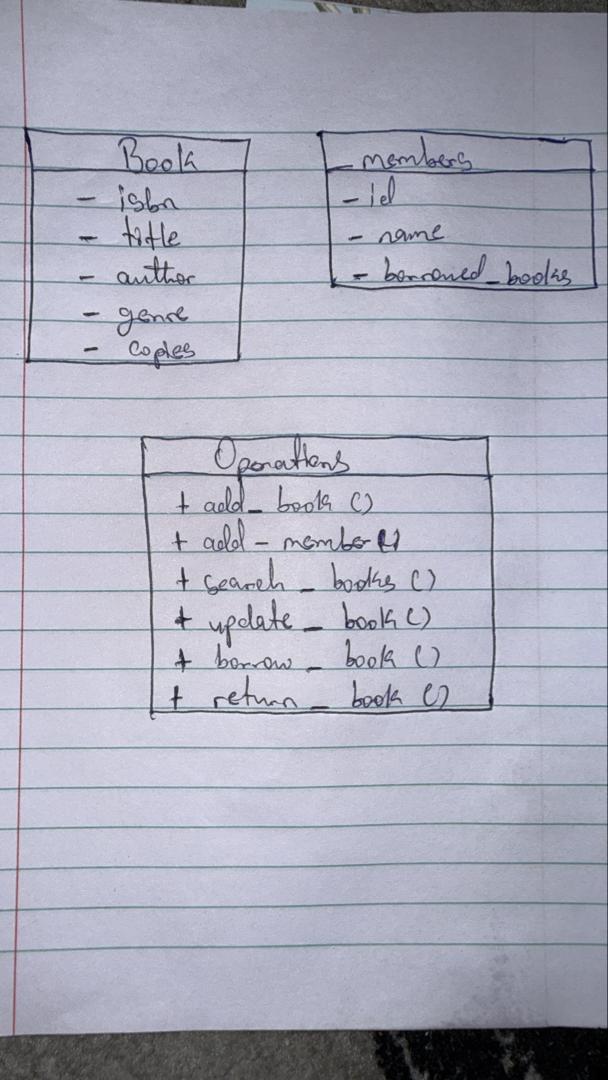 Book
- isbn
- title
- author
- genre
- copies
members
- id
- name
- borrowed_books
Operations
+ add_book ()
+ add-member()
+ search_books ()
+ update_book ()
+ borrow_book ()
+ return_book ()